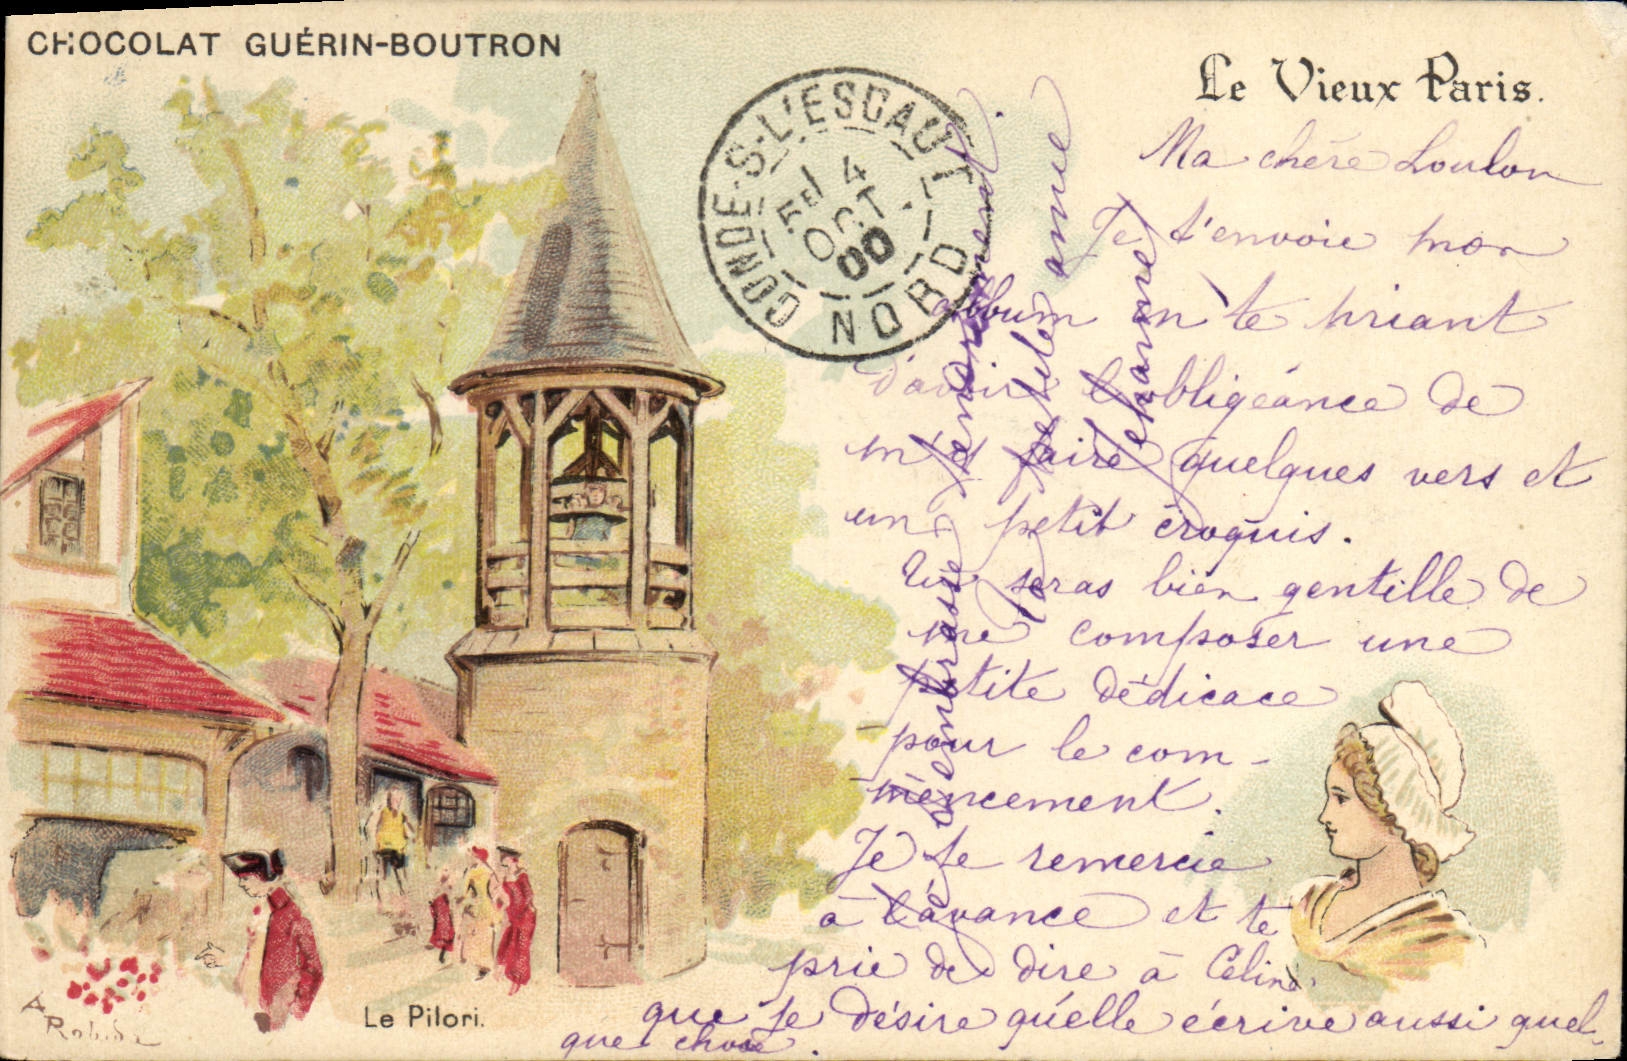 CHOCOLAT GUÉRIN-BOUTRON
Le Vieux Paris.
CONDÉ-S-L'ESCAUT
5E 4
OCT.
00
NORD
Ma chère Loulou
Je t'envoie mon
album en te priant
d'avoir l'obligéance de
m'es faire quelques vers et
un petit croquis.
Tu seras bien gentille de
me composer une
petite dédicace
pour le com-
mencement.
Je te remercie
à l'avance et te
prie de dire à Célina
que je désire qu'elle écrive aussi quel-
que chose.
Ton
petite amie
t'embrasse tendrement.
Jehanne
Le Pilori.
A Robida